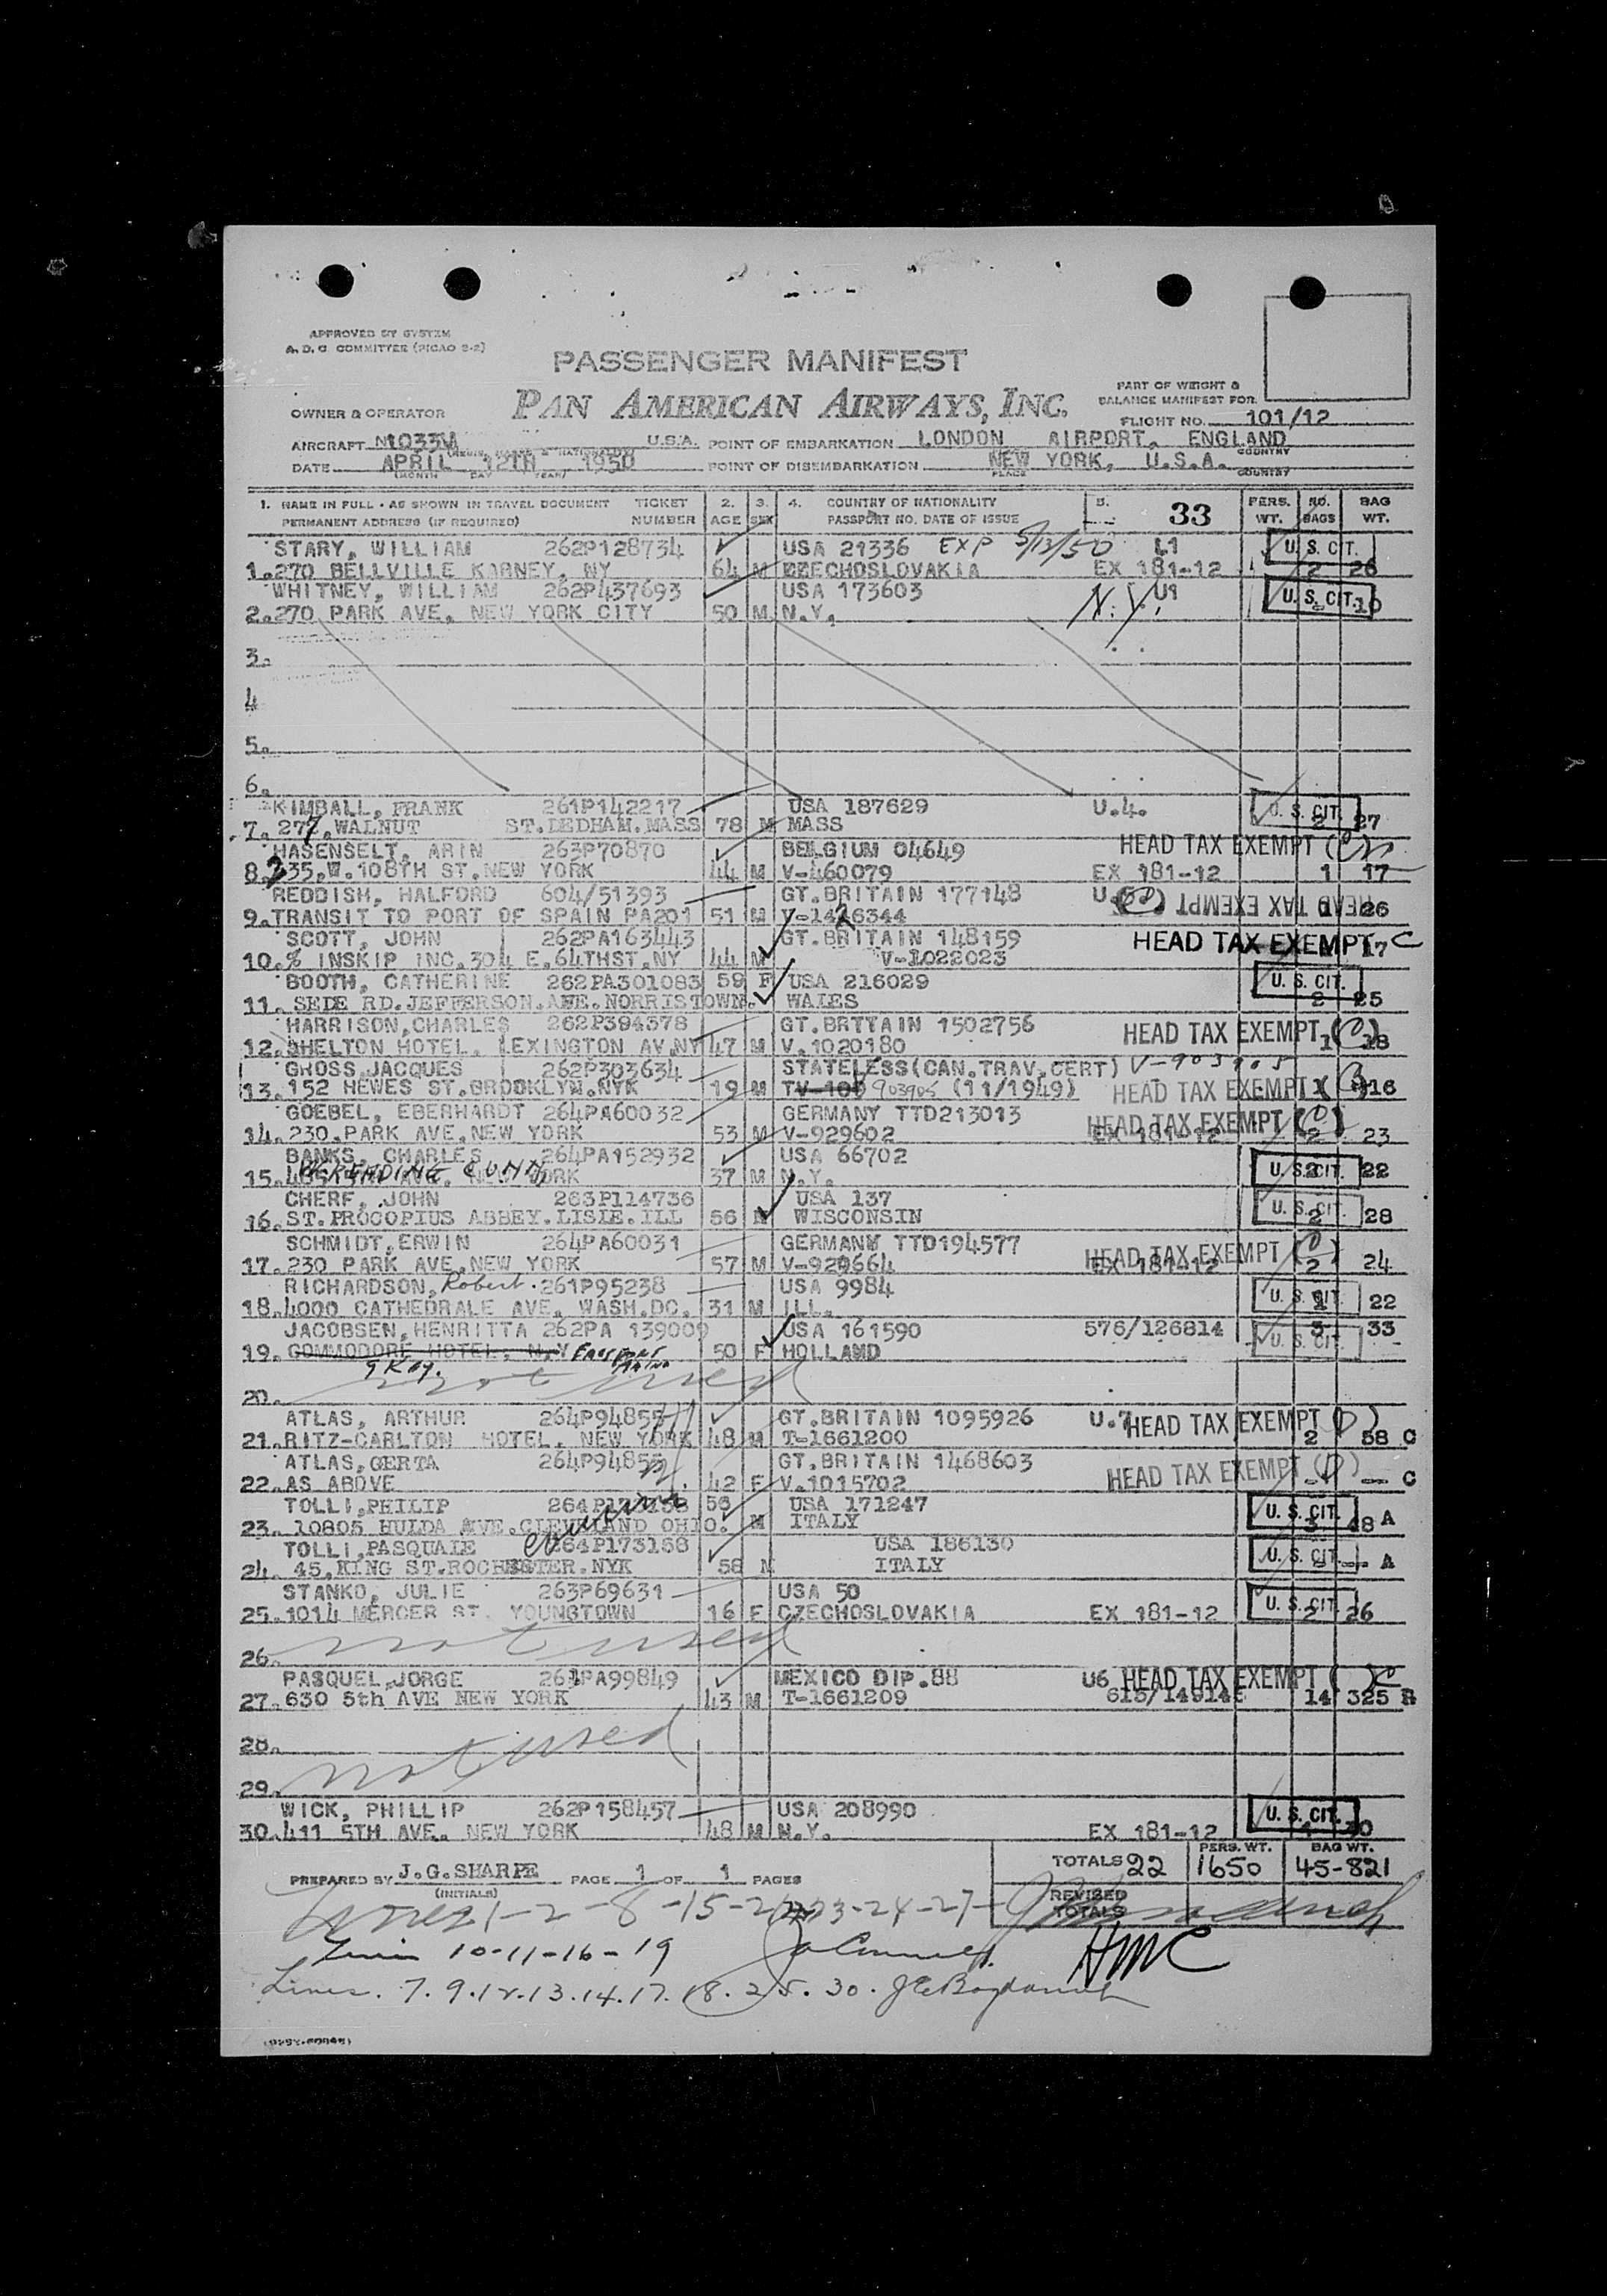 APPROVED BY SYSTEM
A. D. C. COMMITTEE (PICAO 2-2)
PASSENGER MANIFEST
PAN AMERICAN AIRWAYS, INC.
PART OF WEIGHT &
BALANCE MANIFEST FOR
OWNER & OPERATOR
FLIGHT NO. 101/12
AIRCRAFT N1033V U.S.A. POINT OF EMBARKATION LONDON AIRPORT, ENGLAND
DATE APRIL 12TH 1950 POINT OF DISEMBARKATION NEW YORK, U.S.A.
(MONTH DAY YEAR) PLACE COUNTRY
1. NAME IN FULL - AS SHOWN IN TRAVEL DOCUMENT TICKET 2. 3. 4. COUNTRY OF NATIONALITY 5. 33 PERS. NO. BAG
PERMANENT ADDRESS (IF REQUIRED) NUMBER AGE SEX PASSPORT NO. DATE OF ISSUE WT. BAGS WT.
STARY, WILLIAM 262P128734 USA 21336 EXP 5/12/50 L1 U. S. CIT.
1. 270 BELLVILLE KARNEY, NY 64 M CZECHOSLOVAKIA EX 181-12 2 26
WHITNEY, WILLIAM 262P437693 USA 173603 U1 U. S. CIT.
2. 270 PARK AVE, NEW YORK CITY 50 M N.Y. N.Y. 10
3.
4
5.
6.
KIMBALL, FRANK 261P142217 USA 187629 U.4. U. S. CIT.
7. 277, WALNUT ST. DEDHAM. MASS 78 M MASS 2 27
HASENSELT, ARIN 263P70870 BELGIUM 04649 HEAD TAX EXEMPT
8. 235. W. 108TH ST. NEW YORK 44 M V-460079 EX 181-12 1 17
REDDISH, HALFORD 604/51393 GT. BRITAIN 177148 HEAD TAX EXEMPT
9. TRANSIT TO PORT OF SPAIN PA201 51 M 26
SCOTT, JOHN 262PA163443 GT. BRITAIN 148159 HEAD TAX EXEMPT C
10. % INSKIP INC. 304 E. 64THST. NY 44 M V-1022023 17
BOOTH, CATHERINE 262PA301083 59 F USA 216029 U. S. CIT.
11. SEDE RD. JEFFERSON. AVE. NORRISTOWN. WALES 2 25
HARRISON, CHARLES 262P394378 GT. BRTTAIN 1502756 HEAD TAX EXEMPT (C)
12. SHELTON HOTEL. LEXINGTON AV. NY 47 M V. 1020180 1 18
GROSS JACQUES 262P303634 STATELESS (CAN. TRAV. CERT) V-903905
13. 152 HEWES ST. BROOKLYN. NYK 19 M 903905 (11/1949) HEAD TAX EXEMPT 16
GOEBEL, EBERHARDT 264PA60032 GERMANY TTD213013 HEAD TAX EXEMPT (C)
14. 230. PARK AVE. NEW YORK 53 M V-929602 EX 181-12 2 23
BANKS, CHARLES 264PA152932 USA 66702 U. S. CIT.
15. READING CONN 37 M N.Y. 2 22
CHERF, JOHN 263P114736 USA 137 U. S. CIT.
16. ST. PROCOPIUS ABBEY. LISLE. ILL 56 M WISCONSIN 2 28
SCHMIDT, ERWIN 264PA60031 GERMANY TTD194577 HEAD TAX EXEMPT (C)
17. 230 PARK AVE. NEW YORK 57 M V-929664 EX 181-12 2 24
RICHARDSON, Robert. 261P95238 USA 9984 U. S. CIT.
18. 4000 CATHEDRALE AVE. WASH. DC. 31 M ILL. 22
JACOBSEN, HENRITTA 262PA 139009 USA 161590 576/126814 3 33
19. COMMODORE HOTEL, N.Y 50 F HOLLAND U. S. CIT.
20. not used
ATLAS, ARTHUR 264P94855 GT. BRITAIN 1095926 U.7 HEAD TAX EXEMPT (D)
21. RITZ-CARLTON HOTEL. NEW YORK 48 M T-1661200 2 58 C
ATLAS, GERTA 264P94855 GT. BRITAIN 1468603 HEAD TAX EXEMPT (D)
22. AS ABOVE 42 F V. 1015702 - -- C
TOLLI, PHILIP 264P173158 56 USA 171247 U. S. CIT.
23. 10805 HULDA AVE. CLEVELAND OHIO. M ITALY 3 48 A
TOLLI, PASQUALE 264P173158 USA 186130 U. S. CIT.
24. 45, KING ST. ROCHESTER. NYK 58 M ITALY -- A
STANKO, JULIE 263P69631 USA 50 U. S. CIT.
25. 1014 MERCER ST. YOUNGTOWN 16 F CZECHOSLOVAKIA EX 181-12 2 26
26. not used
PASQUEL, JORGE 261PA99849 MEXICO DIP. 88 U6 HEAD TAX EXEMPT
27. 630 5th AVE NEW YORK 43 M T-1661209 14 325 R
28.
29. not used
WICK, PHILLIP 262P158457 USA 208990 U. S. CIT.
30. 411 5TH AVE. NEW YORK 48 M N.Y. EX 181-12 30
TOTALS 22 PERS. WT. 1650 BAG WT. 45-821
PREPARED BY J.G. SHARPE PAGE 1 OF 1 PAGES
(INITIALS) REVISED TOTALS
Lines 1-2-8-15-21-22-23-24-27-
10-11-16-19 HMC
Lines. 7. 9. 12. 13. 14. 17. 18. 25. 30.